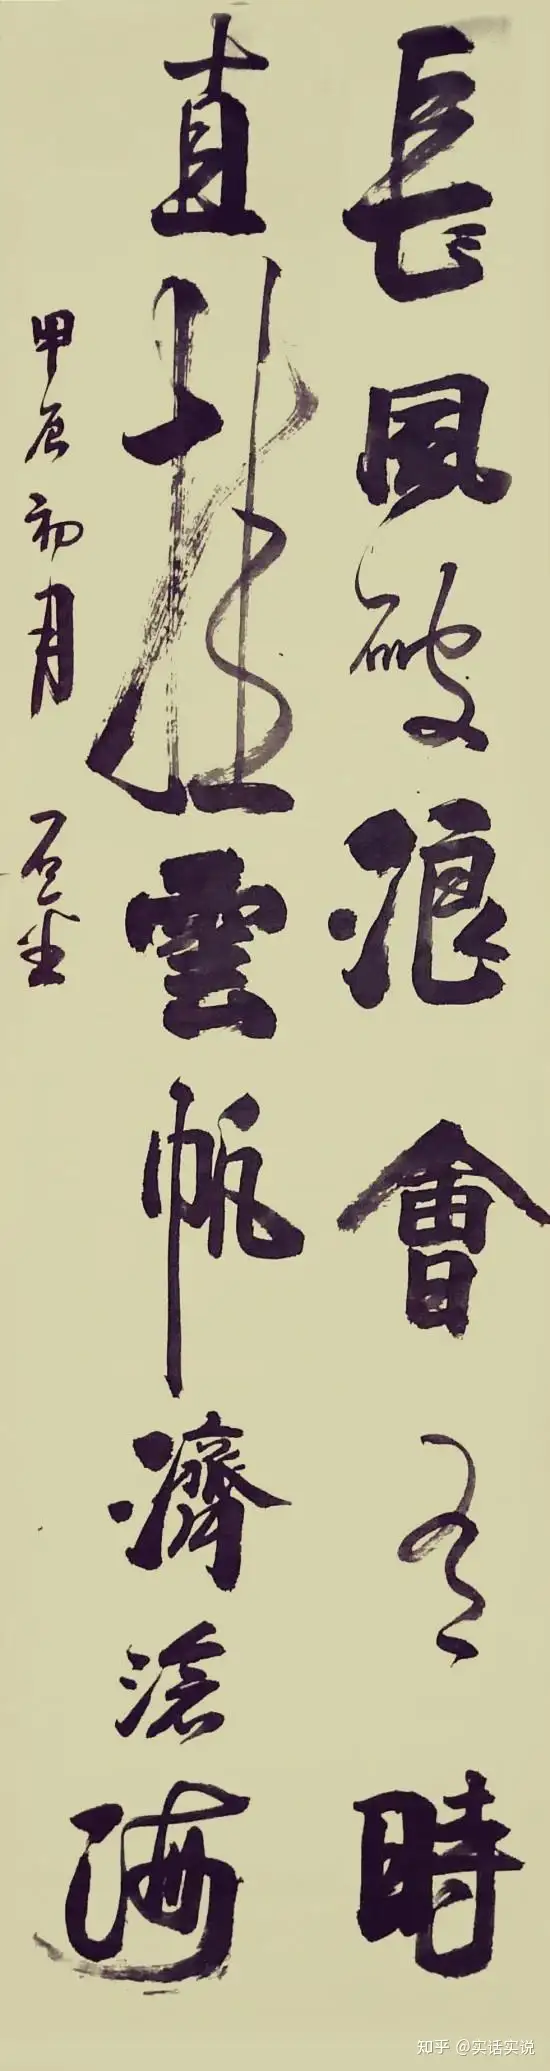 長風破浪會有時
直挂雲帆濟滄海
甲辰初月
知乎 @实话实说